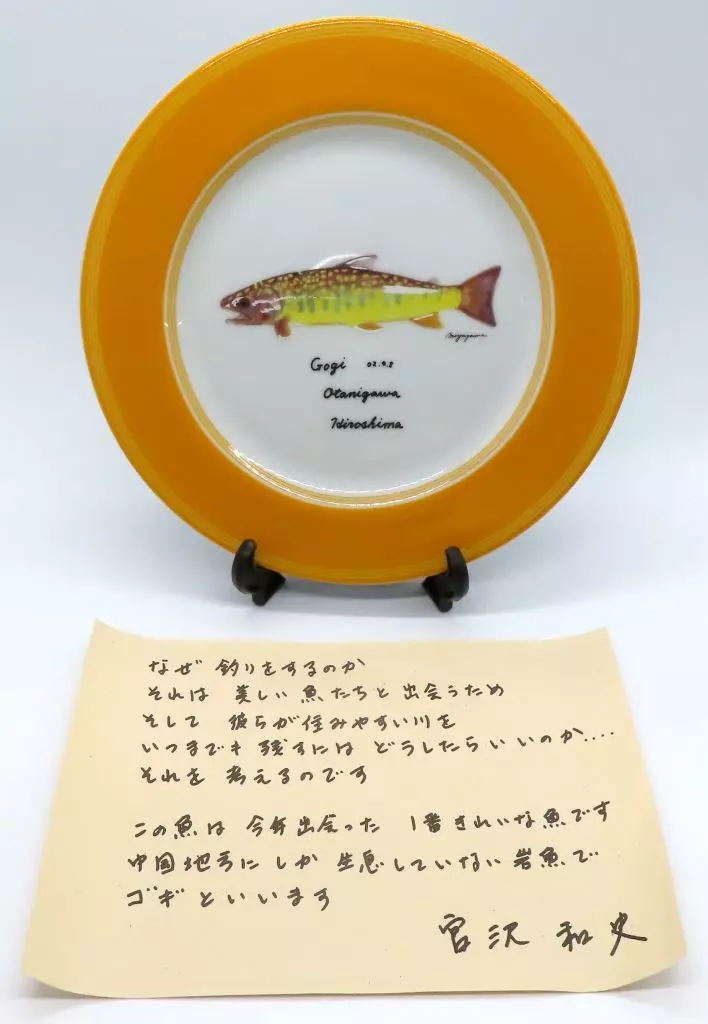 Gogi 02.9.8
Otanigawa
Hiroshima
なぜ 釣りをするのか
それは 美しい 魚たちと 出会うため
そして 彼らが住みやすい川を
いつまでも 残すには どうしたらいいのか....
それを 考えるのです
この魚は 今年出会った 1番きれいな魚です
中国地方にしか 生息していない 岩魚で
ゴギ といいます
宮沢 和史